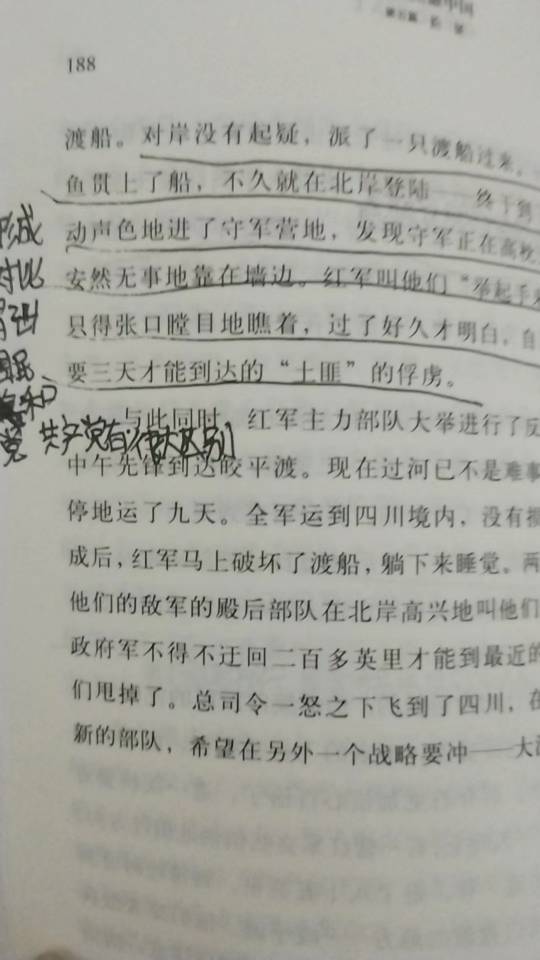 中国
188
渡船。对岸没有起疑，派了一只渡船过来，
鱼贯上了船，不久就在北岸登陆——终于到
动声色地进了守军营地，发现守军正在
安然无事地靠在墙边。红军叫他们“举起手来
只得张口瞠目地瞧着，过了好久才明白，自
要三天才能到达的“土匪”的俘虏。
与此同时，红军主力部队大举进行了反
中午先锋到达皎平渡。现在过河已不是难事
停地运了九天。全军运到四川境内，没有损
成后，红军马上破坏了渡船，躺下来睡觉。两
他们的敌军的殿后部队在北岸高兴地叫他们
政府军不得不迂回二百多英里才能到最近的
们甩掉了。总司令一怒之下飞到了四川，在
新的部队，希望在另外一个战略要冲——大
形成
对比
国民
党 共产党有很大区别